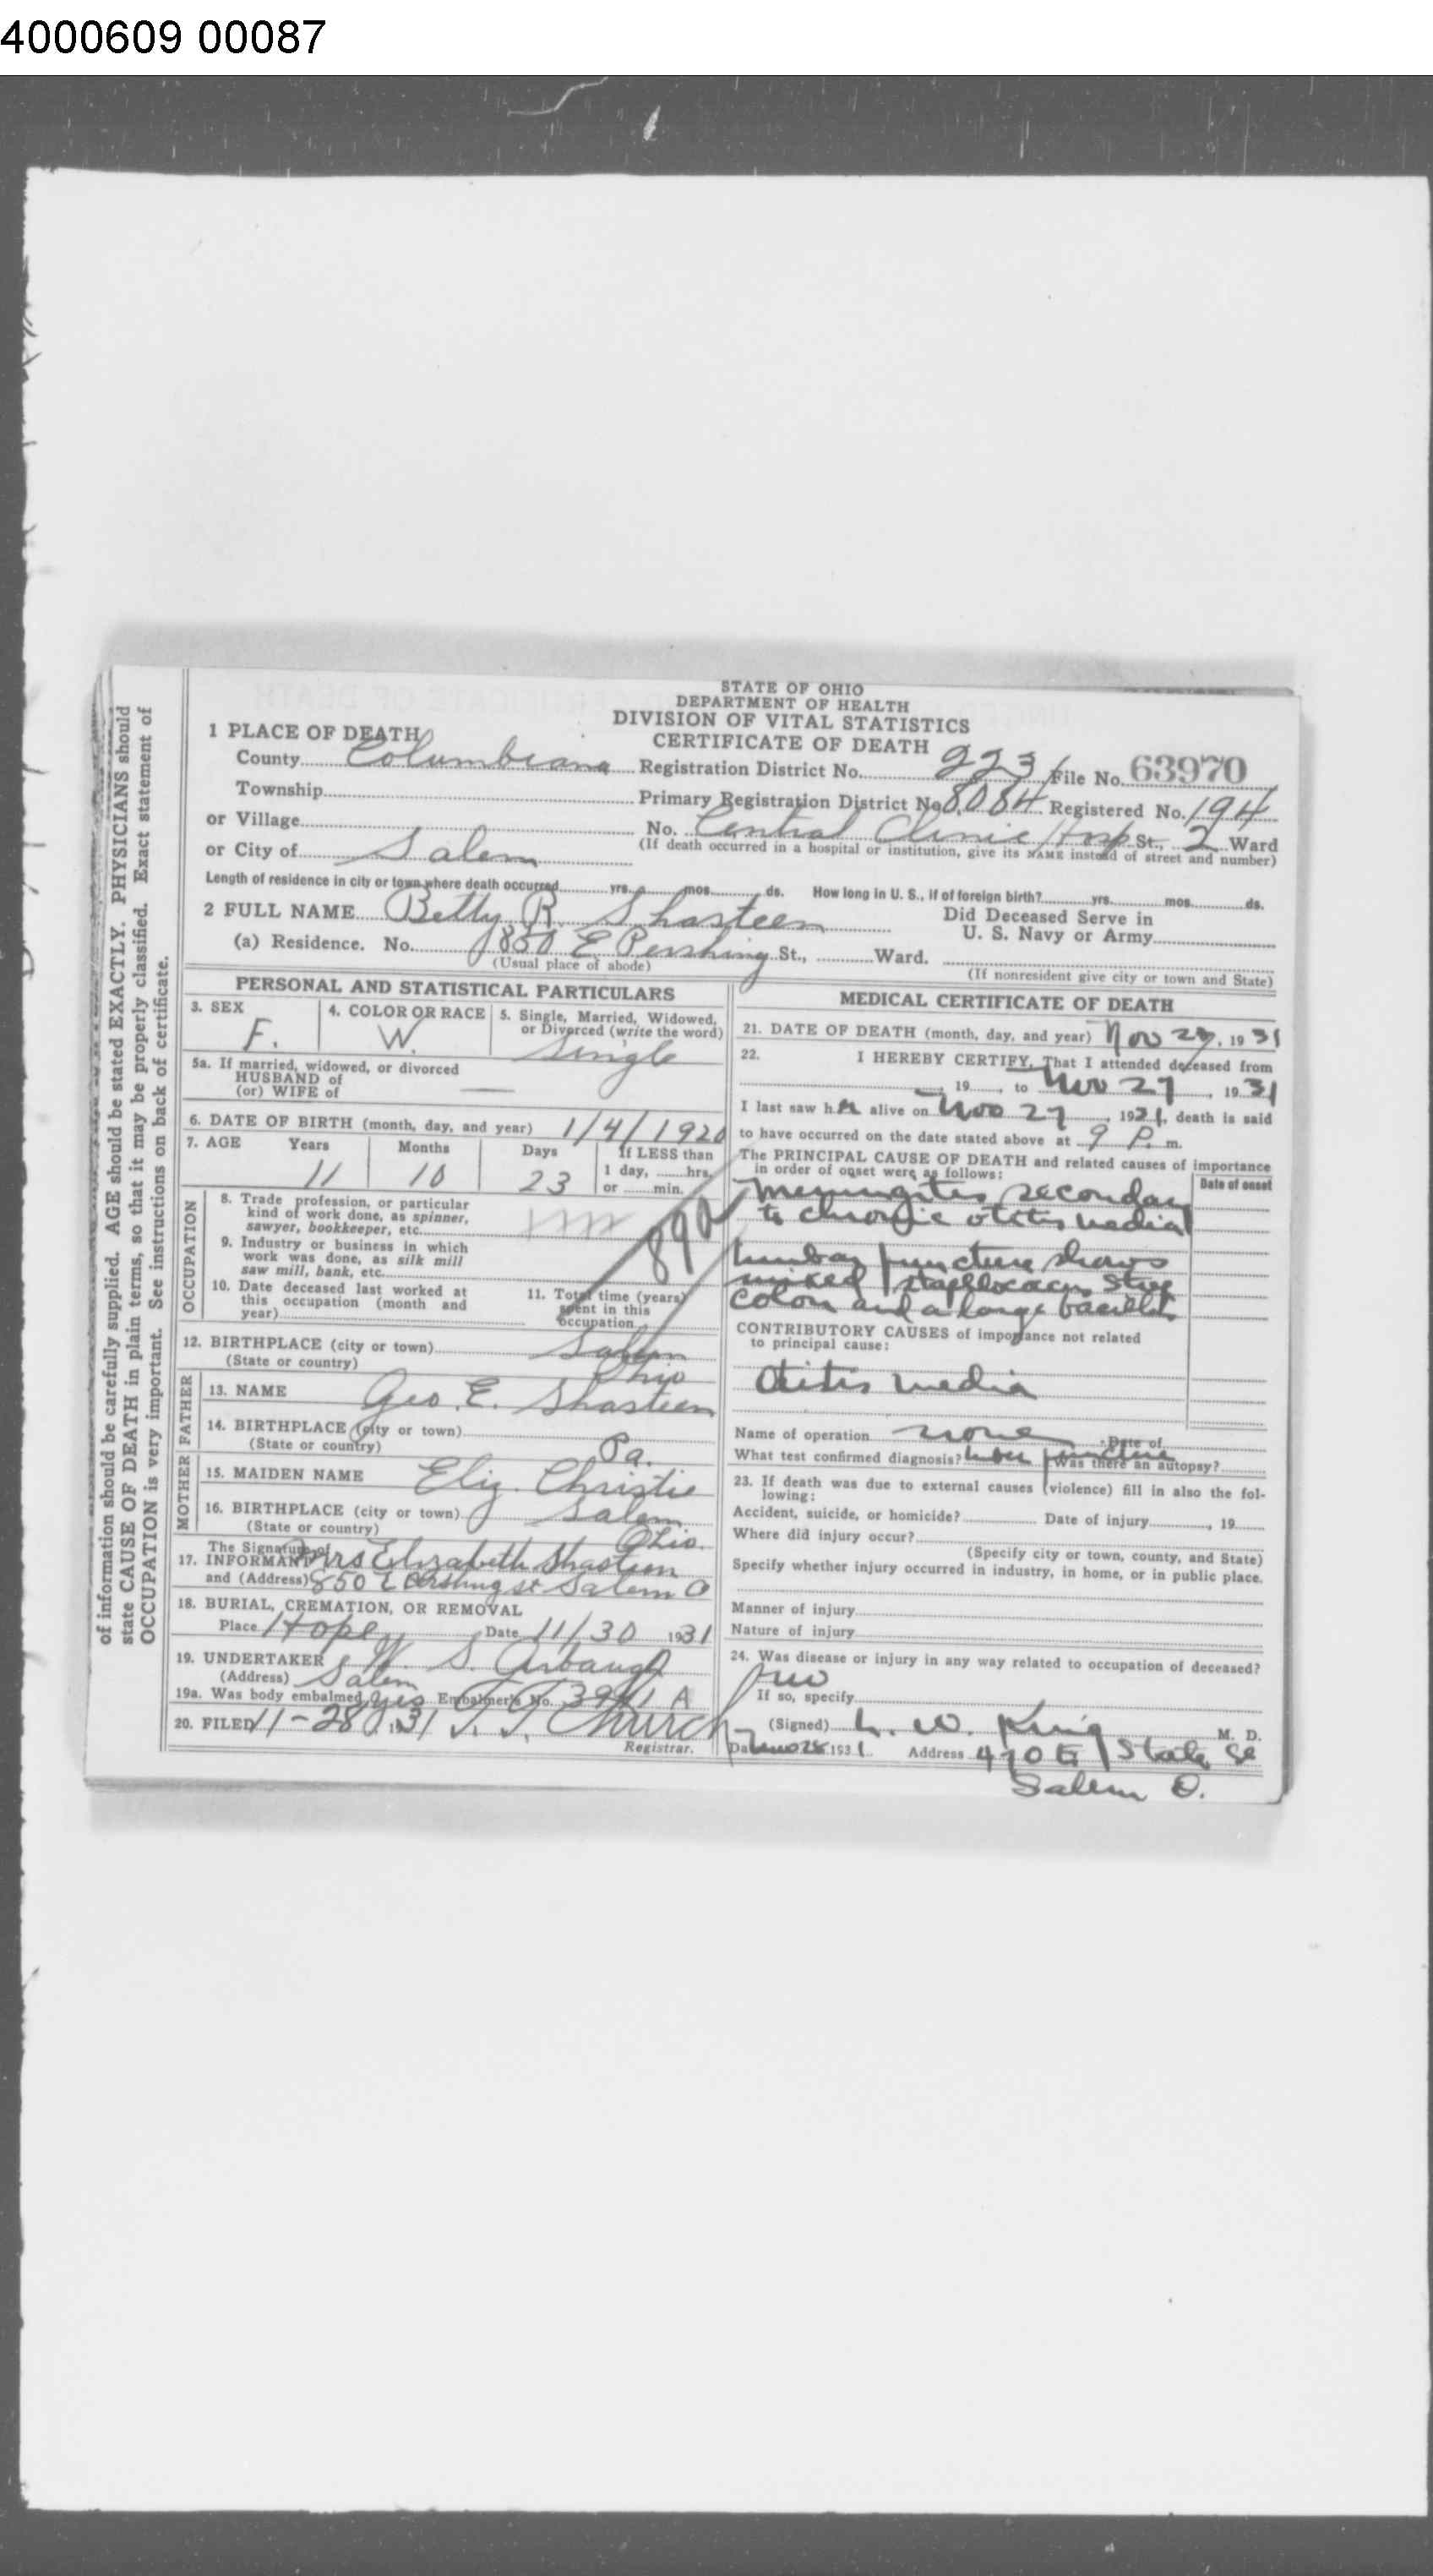 4000609 00087
STATE OF OHIO
DEPARTMENT OF HEALTH
DIVISION OF VITAL STATISTICS
CERTIFICATE OF DEATH
1 PLACE OF DEATH
County Columbiana Registration District No. 223 File No. 63970
Township Primary Registration District No. 8084 Registered No. 194
or Village No. Central Clinic Hosp St., 2 Ward
or City of Salem (If death occurred in a hospital or institution, give its NAME instead of street and number)
Length of residence in city or town where death occurred yrs. mos. ds. How long in U. S., if of foreign birth? yrs. mos. ds.
2 FULL NAME Betty R. Shasteen Did Deceased Serve in
U. S. Navy or Army
(a) Residence. No. 850 E Pershing St., Ward.
(Usual place of abode) (If nonresident give city or town and State)
PERSONAL AND STATISTICAL PARTICULARS
3. SEX 4. COLOR OR RACE 5. Single, Married, Widowed,
or Divorced (write the word)
F. W. Single
5a. If married, widowed, or divorced
HUSBAND of
(or) WIFE of —
6. DATE OF BIRTH (month, day, and year) 1/4/1920
7. AGE Years Months Days If LESS than
1 day, hrs.
or min.
11 10 23
OCCUPATION
8. Trade profession, or particular
kind of work done, as spinner,
sawyer, bookkeeper, etc.
9. Industry or business in which
work was done, as silk mill
saw mill, bank, etc.
10. Date deceased last worked at
this occupation (month and
year)
11. Total time (years)
spent in this
occupation
12. BIRTHPLACE (city or town) Salem
(State or country) Ohio
FATHER
13. NAME Geo. E. Shasteen
14. BIRTHPLACE (city or town)
(State or country) Pa.
MOTHER
15. MAIDEN NAME Eliz. Christie
16. BIRTHPLACE (city or town) Salem
(State or country) Ohio.
The Signature of
17. INFORMANT Mrs Elizabeth Shasteen
and (Address) 850 E Pershing st Salem O
18. BURIAL, CREMATION, OR REMOVAL
Place Hope Date 11/30 1931
19. UNDERTAKER S. Arbaugh
(Address) Salem
19a. Was body embalmed yes Embalmer's No. A
20. FILED 11-28 1931 Church
Registrar.
MEDICAL CERTIFICATE OF DEATH
21. DATE OF DEATH (month, day, and year) Nov 27, 1931
22. I HEREBY CERTIFY, That I attended deceased from
, 19 to Nov 27, 1931
I last saw her alive on Nov 27, 1931, death is said
to have occurred on the date stated above at 9 P. m.
The PRINCIPAL CAUSE OF DEATH and related causes of importance
in order of onset were as follows:
Date of onset
Meningitis secondary
to chronic otitis media
lumbar puncture shows
mixed strep
colon and a large bacillus
CONTRIBUTORY CAUSES of importance not related
to principal cause:
Otitis media
Name of operation none Date of
What test confirmed diagnosis? puncture Was there an autopsy?
23. If death was due to external causes (violence) fill in also the fol-
lowing:
Accident, suicide, or homicide? Date of injury , 19
Where did injury occur?
(Specify city or town, county, and State)
Specify whether injury occurred in industry, in home, or in public place.
Manner of injury
Nature of injury
24. Was disease or injury in any way related to occupation of deceased?
no
If so, specify
(Signed) L. W. King M. D.
Date Nov 28 1931. Address 470 E State St
Salem O.
of information should be carefully supplied. AGE should be stated EXACTLY. PHYSICIANS should
state CAUSE OF DEATH in plain terms, so that it may be properly classified. Exact statement of
OCCUPATION is very important. See instructions on back of certificate.